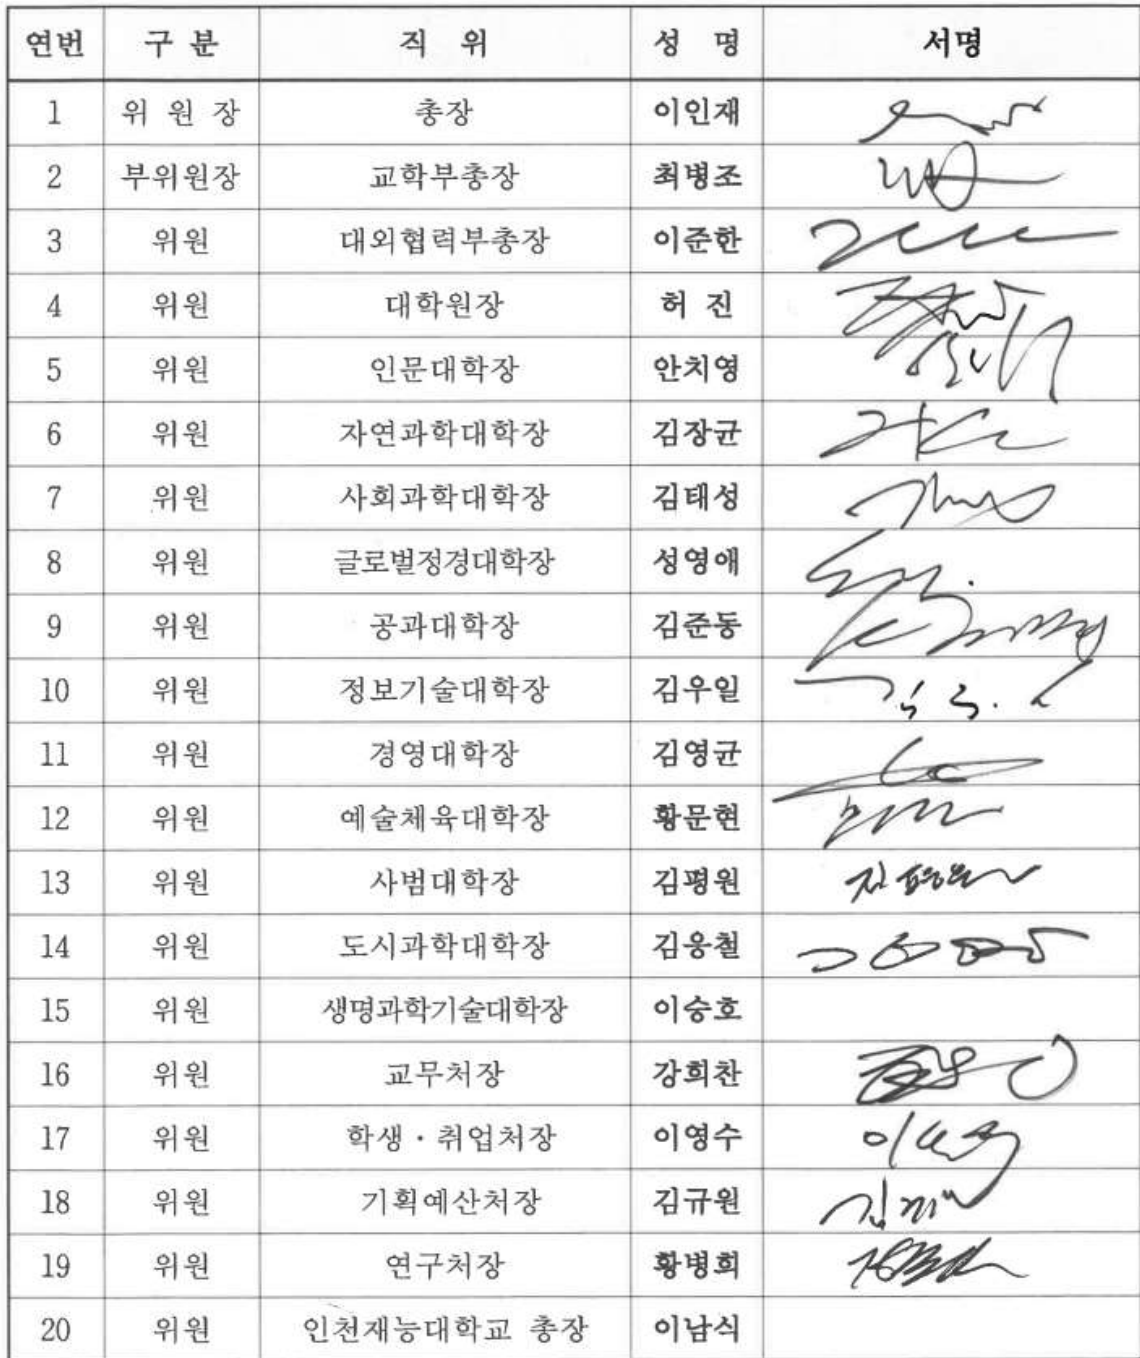 연번 구 분 직 위 성 명 서명
1 위 원 장 총장 이인재
2 부위원장 교학부총장 최병조
3 위원 대외협력부총장 이준한
4 위원 대학원장 허 진
5 위원 인문대학장 안치영
6 위원 자연과학대학장 김장균
7 위원 사회과학대학장 김태성
8 위원 글로벌정경대학장 성영애
9 위원 공과대학장 김준동
10 위원 정보기술대학장 김우일
11 위원 경영대학장 김영균
12 위원 예술체육대학장 황문현
13 위원 사범대학장 김평원
14 위원 도시과학대학장 김응철
15 위원 생명과학기술대학장 이승호
16 위원 교무처장 강희찬
17 위원 학생·취업처장 이영수
18 위원 기획예산처장 김규원
19 위원 연구처장 황병희
20 위원 인천재능대학교 총장 이남식